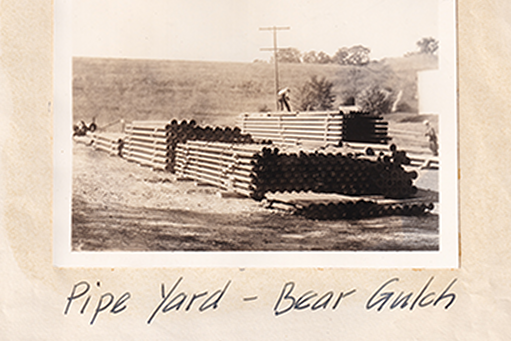 Pipe Yard - Bear Gulch